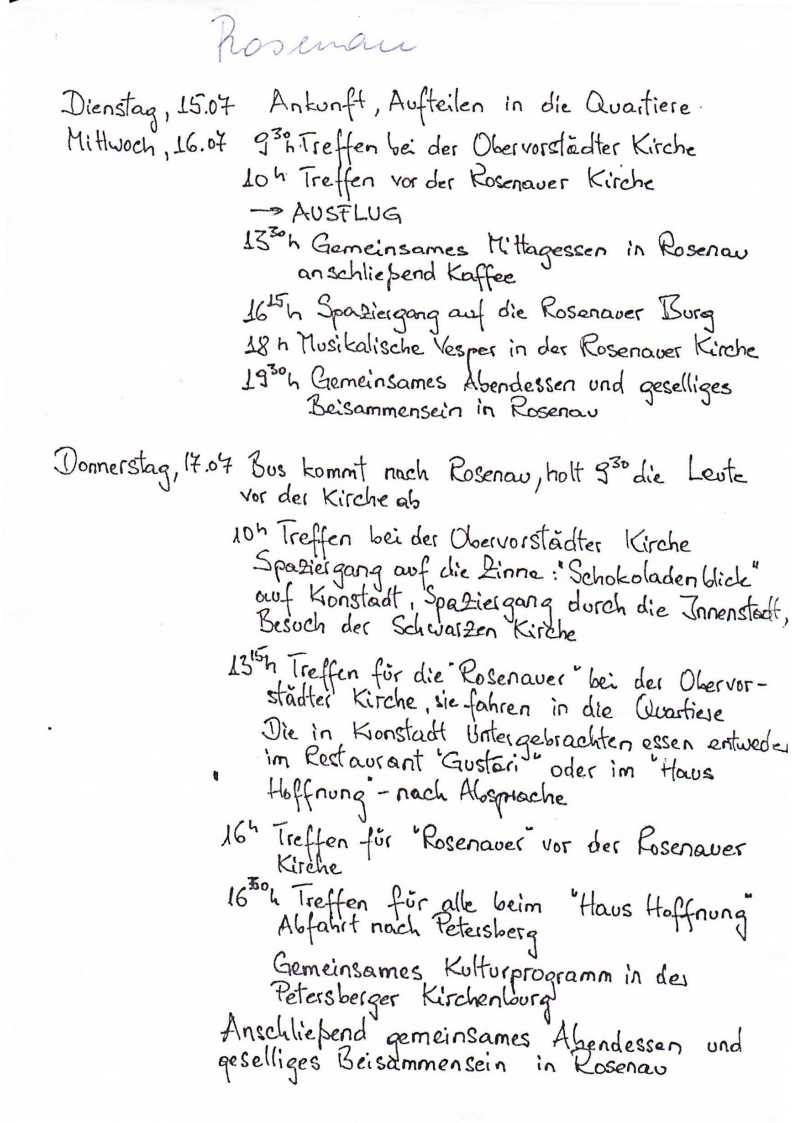 Rosenau
Dienstag, 15.07 Ankunft, Aufteilen in die Quartiere.
Mittwoch, 16.07 9³⁰h Treffen bei der Obervorstädter Kirche
10h Treffen vor der Rosenauer Kirche
→ AUSFLUG
13³⁰h Gemeinsames Mittagessen in Rosenau
anschließend Kaffee
16¹⁵h Spaziergang auf die Rosenauer Burg
18h Musikalische Vesper in der Rosenauer Kirche
19³⁰h Gemeinsames Abendessen und geselliges
Beisammensein in Rosenau
Donnerstag, 17.07 Bus kommt nach Rosenau, holt 9³⁰ die Leute
vor der Kirche ab
10h Treffen bei der Obervorstädter Kirche
Spaziergang auf die Zinne: "Schokoladenblick"
auf Konstadt, Spaziergang durch die Innenstadt,
Besuch der Schwarzen Kirche
13¹⁵h Treffen für die "Rosenauer" bei der Obervor-
städter Kirche, sie fahren in die Quartiere
Die in Konstadt Untergebrachten essen entweder
im Restaurant "Gustari" oder im "Haus
Hoffnung" - nach Absprache
16h Treffen für "Rosenauer" vor der Rosenauer
Kirche
16³⁰h Treffen für alle beim "Haus Hoffnung"
Abfahrt nach Petersberg
Gemeinsames Kulturprogramm in der
Petersberger Kirchenburg
Anschließend gemeinsames Abendessen und
geselliges Beisammensein in Rosenau